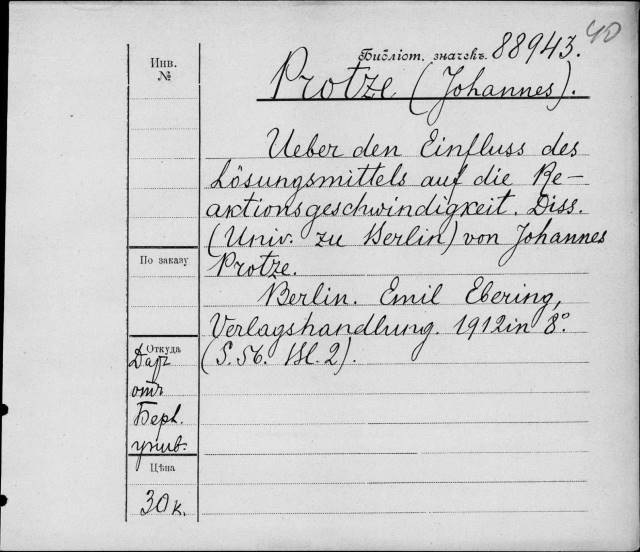 40
Библіот. значекъ. 88943.
Инв.
№
Protze (Johannes).
Ueber den Einfluss des
Lösungsmittels auf die Re-
aktionsgeschwindigkeit. Diss.
(Univ. zu Berlin) von Johannes
Protze.
По заказу
Berlin. Emil Ebering,
Verlagshandlung. 1912 in 8°.
(S. 56. Bl. 2).
Откуда
Даръ
отъ
Берл.
унив.
Цѣна
30 к.